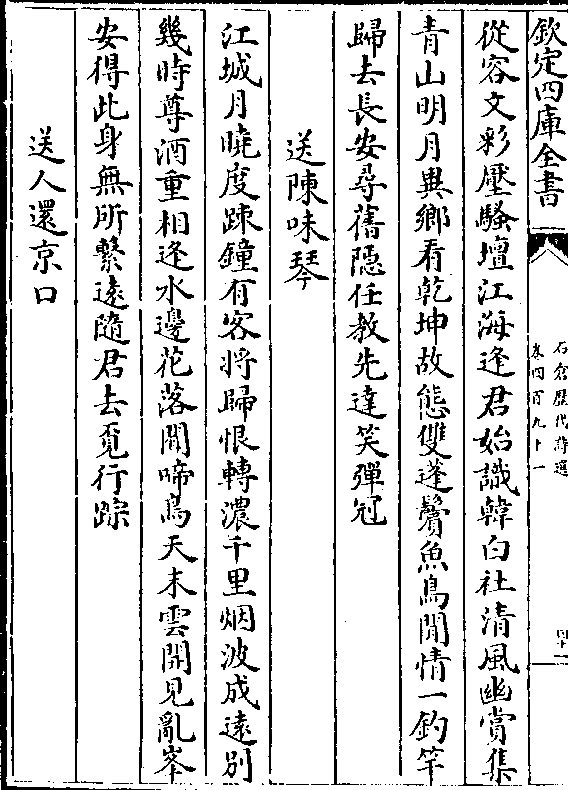 欽定四庫全書
石倉歷代詩選
卷四百九十一
四十一
從容文彩壓騷壇江海逢君始識韓白社清風幽賞集
青山明月異鄉看乾坤故態雙蓬鬢魚鳥閒情一釣竿
歸去長安尋舊隠任教先達笑彈冠
送陳味琴
江城月曉度踈鐘有客將歸恨轉濃千里烟波成遠別
幾時尊酒重相逢水邊花落聞啼鳥天末雲開見亂峯
安得此身無所繫遠隨君去覓行踪
送人還京口